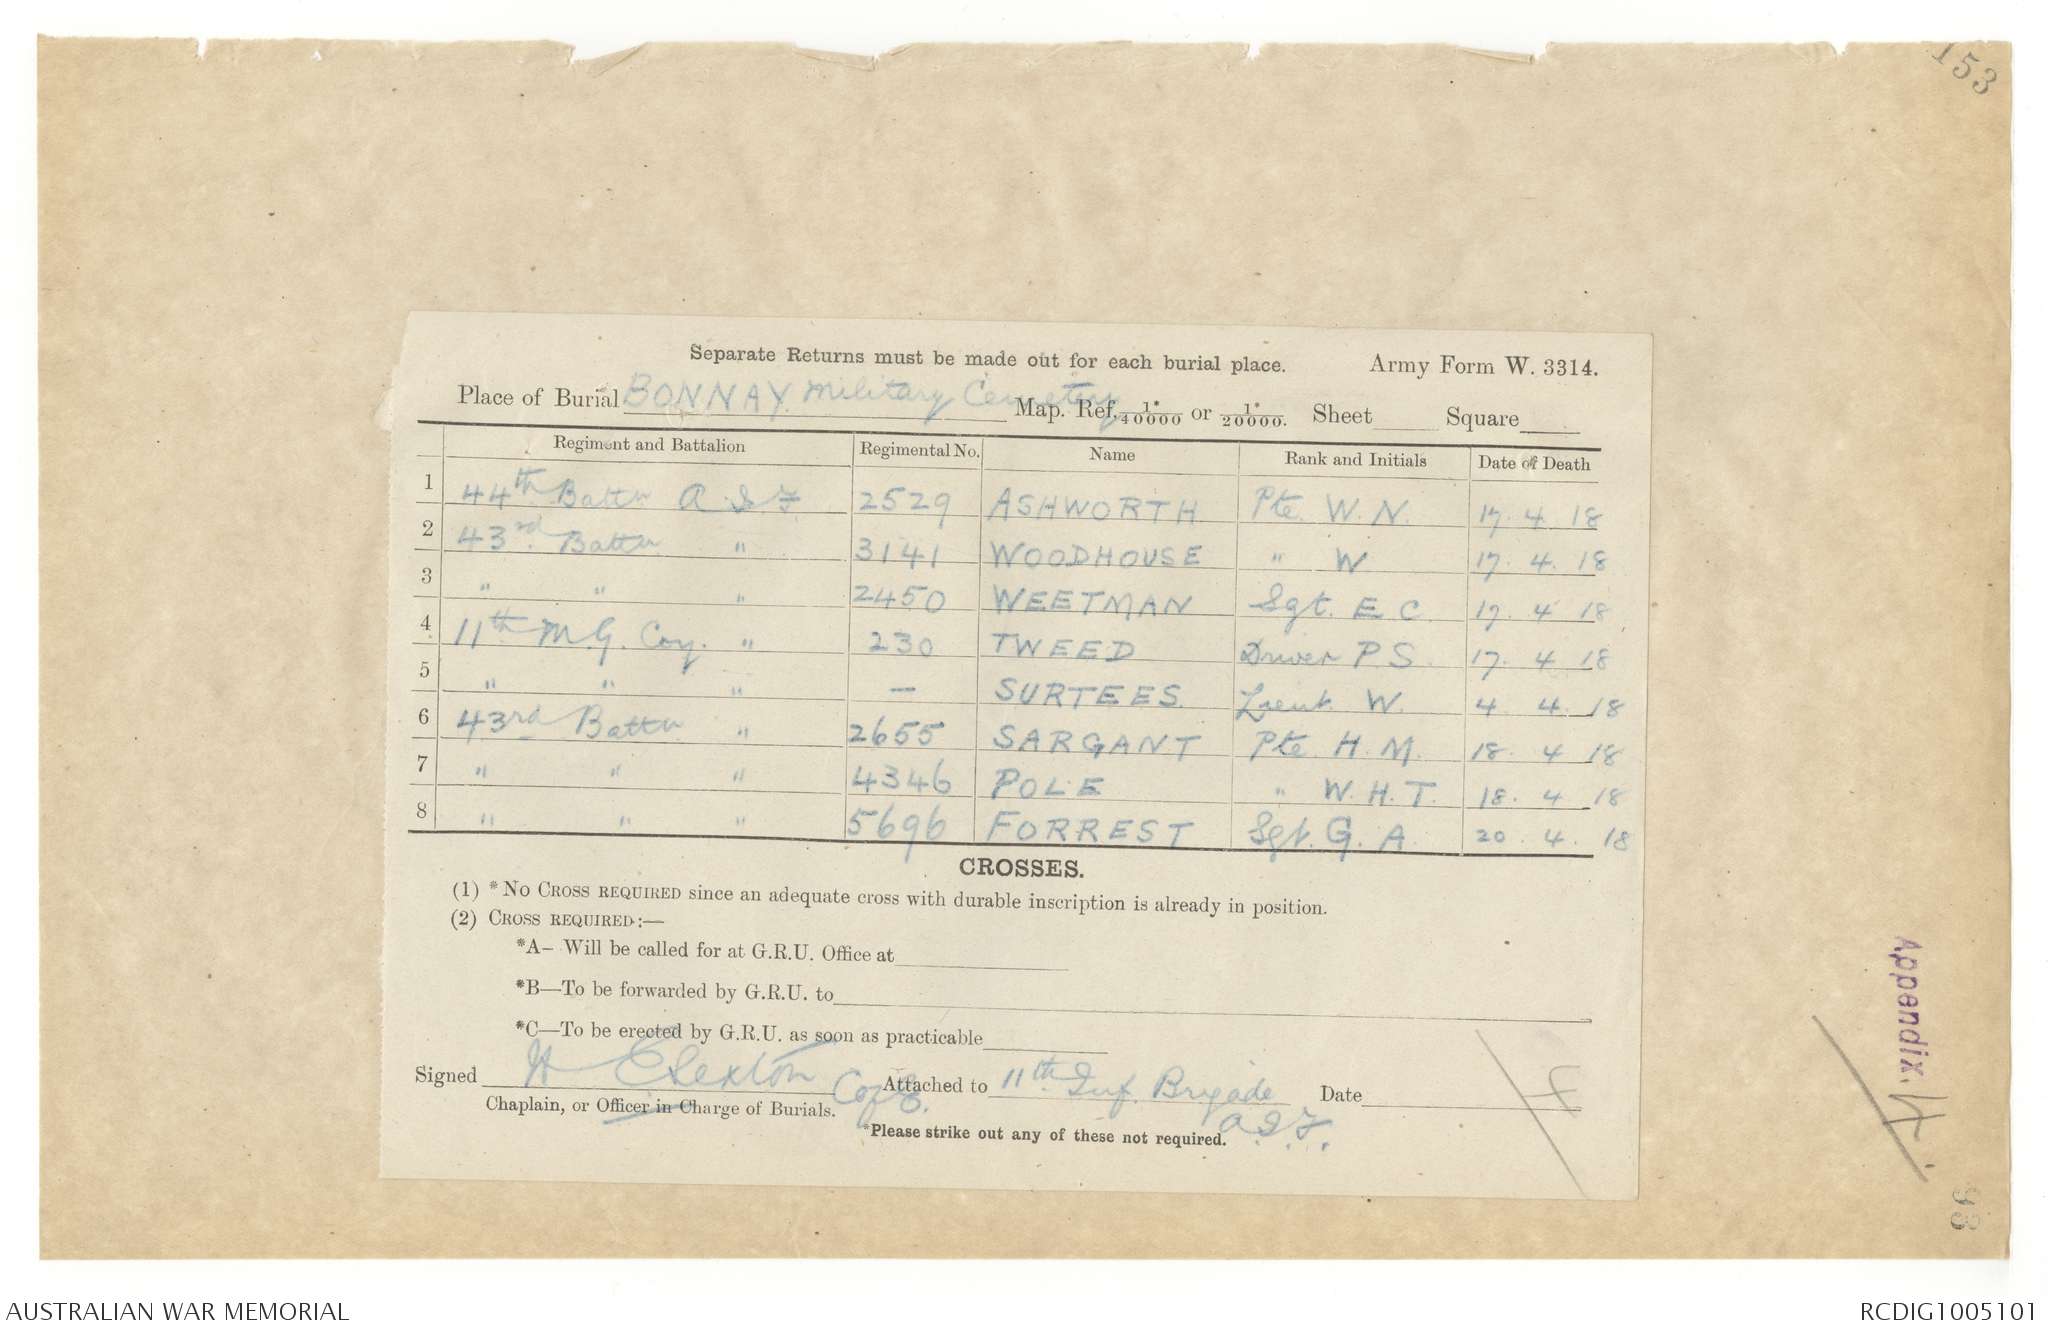 153
Separate Returns must be made out for each burial place. Army Form W. 3314.
Place of Burial BONNAY Military Cemetery Map. Ref. 1*/40000 or 1*/20000. Sheet Square
Regiment and Battalion Regimental No. Name Rank and Initials Date of Death
1 44th Battn A I F 2529 ASHWORTH Pte. W. N. 17. 4. 18
2 43rd Battn " 3141 WOODHOUSE " W 17. 4. 18
3 " " " 2450 WEETMAN Sgt. E C. 17. 4 18
4 11th M.G. Coy. " 230 TWEED Driver P S. 17. 4 18
5 " " " — SURTEES Lieut. W. 4. 4. 18
6 43rd Battn " 2655 SARGANT Pte H. M. 18. 4 18
7 " " " 4346 POLE " W. H. T. 18. 4 18
8 " " " 5696 FORREST Sgt. G. A. 20. 4. 18
CROSSES.
(1) * NO CROSS REQUIRED since an adequate cross with durable inscription is already in position.
(2) CROSS REQUIRED:—
*A— Will be called for at G.R.U. Office at
*B—To be forwarded by G.R.U. to
*C—To be erected by G.R.U. as soon as practicable
Signed H Sexton C of E. Attached to 11th Inf. Brigade Date
Chaplain, or Officer in Charge of Burials. A.I.F.
*Please strike out any of these not required.
Appendix.
98
AUSTRALIAN WAR MEMORIAL RCDIG1005101